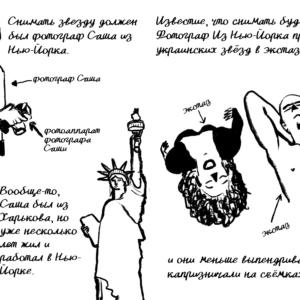 Снимать звезду должен
был фотограф Саша из
Нью-Йорка.
фотограф Саша
фотоаппарат
фотографа
Саши
Вообще-то,
Саша был из
Харькова, но
уже несколько
лет жил и
работал в Нью-
Йорке.
Известие, что снимать буд
Фотограф Из Нью-Йорка пр
украинских звёзд в экстаз
экстаз
экстаз
и они меньше выпендрива
капризничали на съёмках